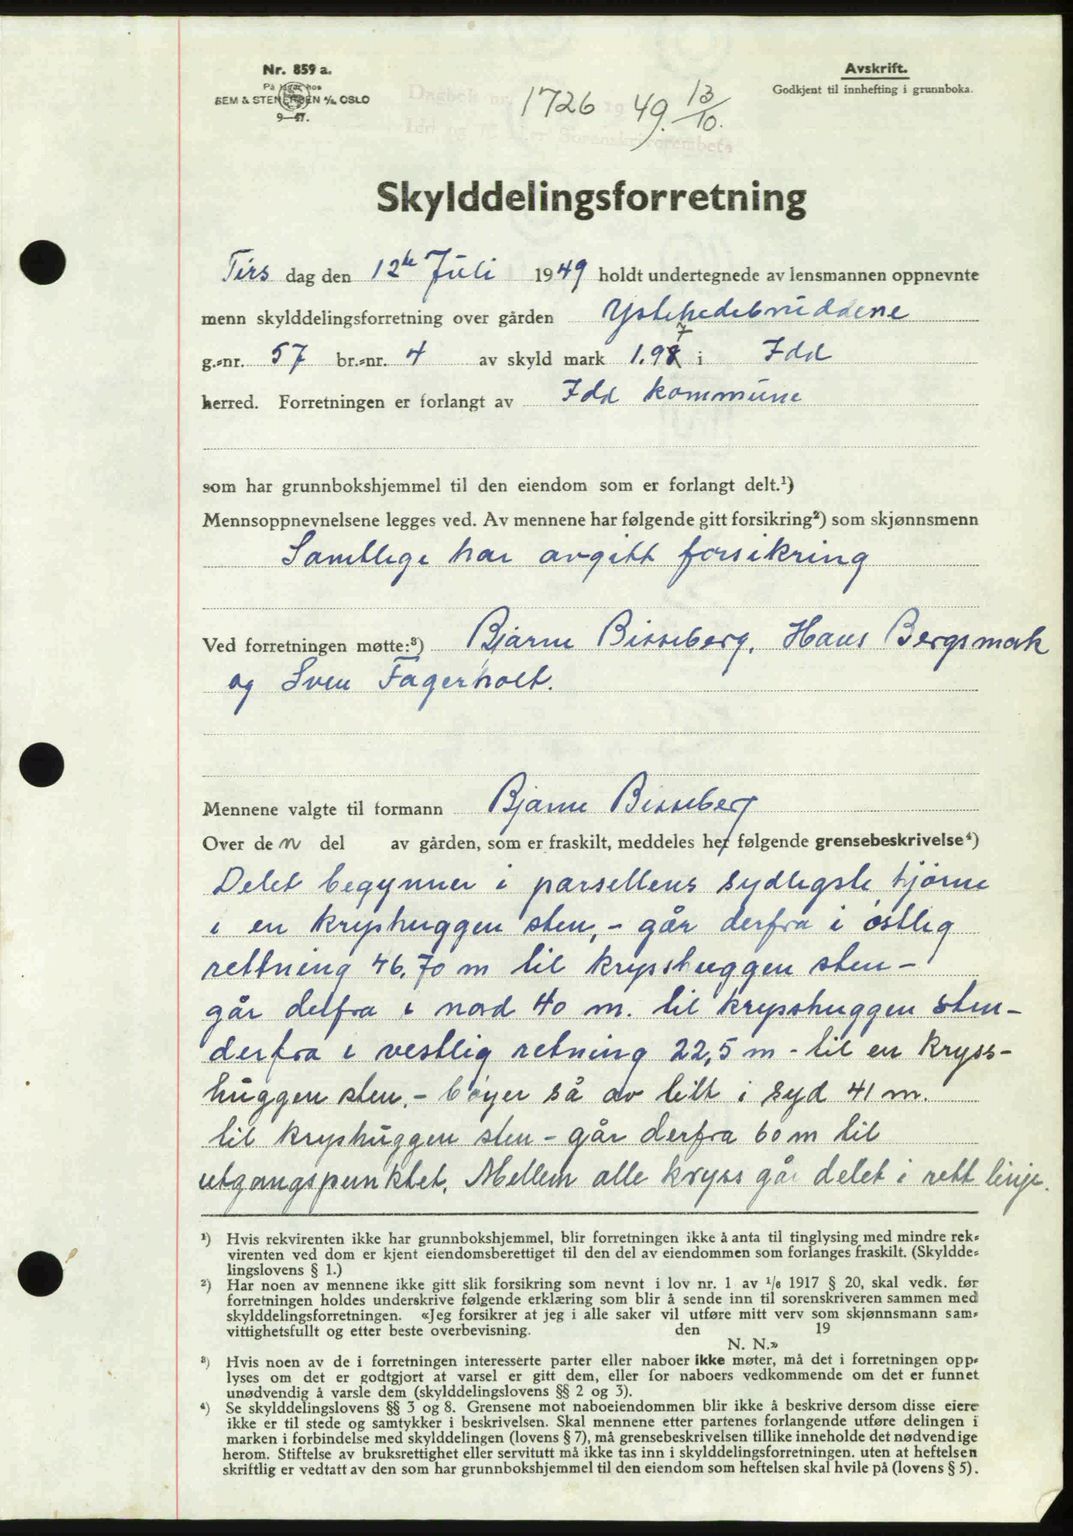 Nr. 859 a.
På lager hos
SEM & STENERSEN A/S OSLO
9—47.
Avskrift.
Godkjent til innhefting i grunnboka.
Dagbok nr. 1726 1949 13/10.
Idd og Marker Sorenskriverembete
Skylddelingsforretning
Tirs dag den 12te Juli 1949 holdt undertegnede av lensmannen oppnevnte
menn skylddelingsforretning over gården Ystehedebruddene
g.-nr. 57 br.-nr. 4 av skyld mark 1.97 i Idd
herred. Forretningen er forlangt av Idd kommune
som har grunnbokshjemmel til den eiendom som er forlangt delt.¹)
Mennsoppnevnelsene legges ved. Av mennene har følgende gitt forsikring²) som skjønnsmenn
Samtlige har avgitt forsikring
Ved forretningen møtte:³) Bjarne Bisseberg, Hans Bergsmark
og Sven Fagerholt.
Mennene valgte til formann Bjarne Bisseberg
Over den del av gården, som er fraskilt, meddeles her følgende grensebeskrivelse⁴)
Delet begynner i parsellens sydligste hjørne
i en kryshuggen sten, - går derfra i østlig
rettning 46,70 m til krysshuggen sten -
går derfra i nord 40 m. til krysshuggen sten -
derfra i vestlig retning 22,5 m - til en kryss-
huggen sten. - bøyer så av litt i syd 41 m.
til kryshuggen sten - går derfra 60 m til
utgangspunktet. Mellem alle kryss går delet i rett linje.
¹) Hvis rekvirenten ikke har grunnbokshjemmel, blir forretningen ikke å anta til tinglysing med mindre rek-
virenten ved dom er kjent eiendomsberettiget til den del av eiendommen som forlanges fraskilt. (Skyldde-
lingslovens § 1.)
²) Har noen av mennene ikke gitt slik forsikring som nevnt i lov nr. 1 av 1/6 1917 § 20, skal vedk. før
forretningen holdes underskrive følgende erklæring som blir å sende inn til sorenskriveren sammen med
skylddelingsforretningen. «Jeg forsikrer at jeg i alle saker vil utføre mitt verv som skjønnsmann sam-
vittighetsfullt og etter beste overbevisning. den 19
N. N.»
³) Hvis noen av de i forretningen interesserte parter eller naboer ikke møter, må det i forretningen opp-
lyses om det er godtgjort at varsel er gitt dem, eller for naboers vedkommende om det er funnet
unødvendig å varsle dem (skylddelingslovens §§ 2 og 3).
⁴) Se skylddelingslovens §§ 3 og 8. Grensene mot naboeiendommen blir ikke å beskrive dersom disse eiere
ikke er til stede og samtykker i beskrivelsen. Skal mennene etter partenes forlangende utføre delingen i
marken i forbindelse med skylddelingen (lovens § 7), må grensebeskrivelsen tillike inneholde det nødvendige
herom. Stiftelse av bruksrettighet eller servitutt må ikke tas inn i skylddelingsforretningen. uten at heftelsen
skriftlig er vedtatt av den som har grunnbokshjemmel til den eiendom som heftelsen skal hvile på (lovens § 5).